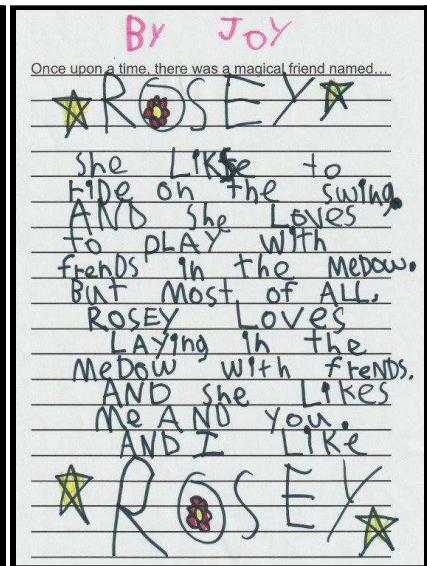 By JOY
Once upon a time, there was a magical friend named...
ROSEY
She LIKse to
riDe on the swing.
AND She Loves
to PLAY With
frenDs in the MeDow.
But Most of ALL,
ROSEY Loves
LAYing in the
MeDow with frenDs.
AND she Likes
Me AND you.
AND I Like
ROSEY